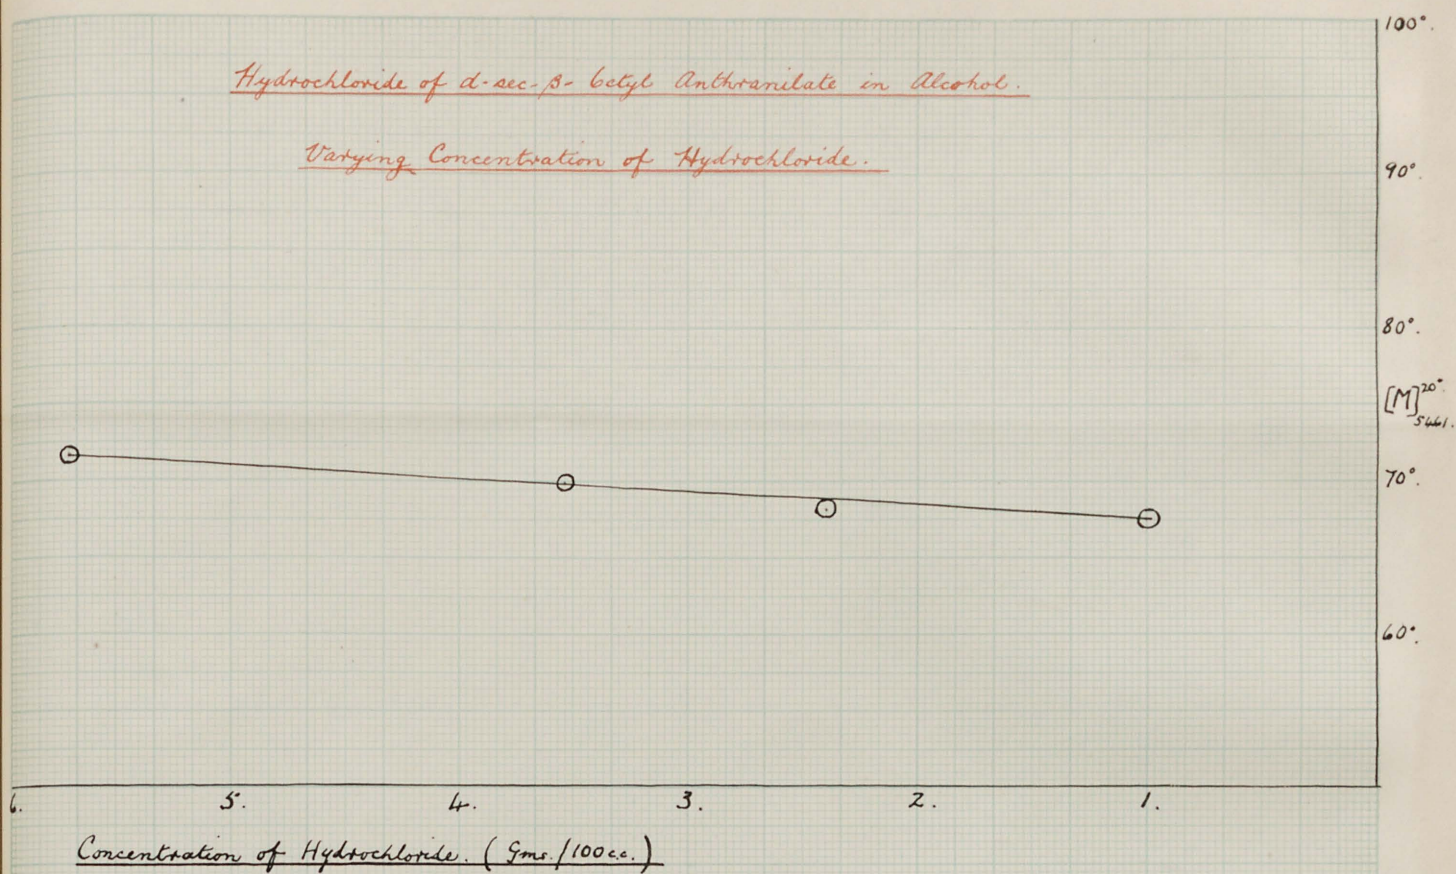 Hydrochloride of d-sec-β-Octyl Anthranilate in Alcohol.
Varying Concentration of Hydrochloride.
100°.
90°.
80°.
[M]20°5461.
70°.
60°.
6. 5. 4. 3. 2. 1.
Concentration of Hydrochloride. (Gms./100c.c.)